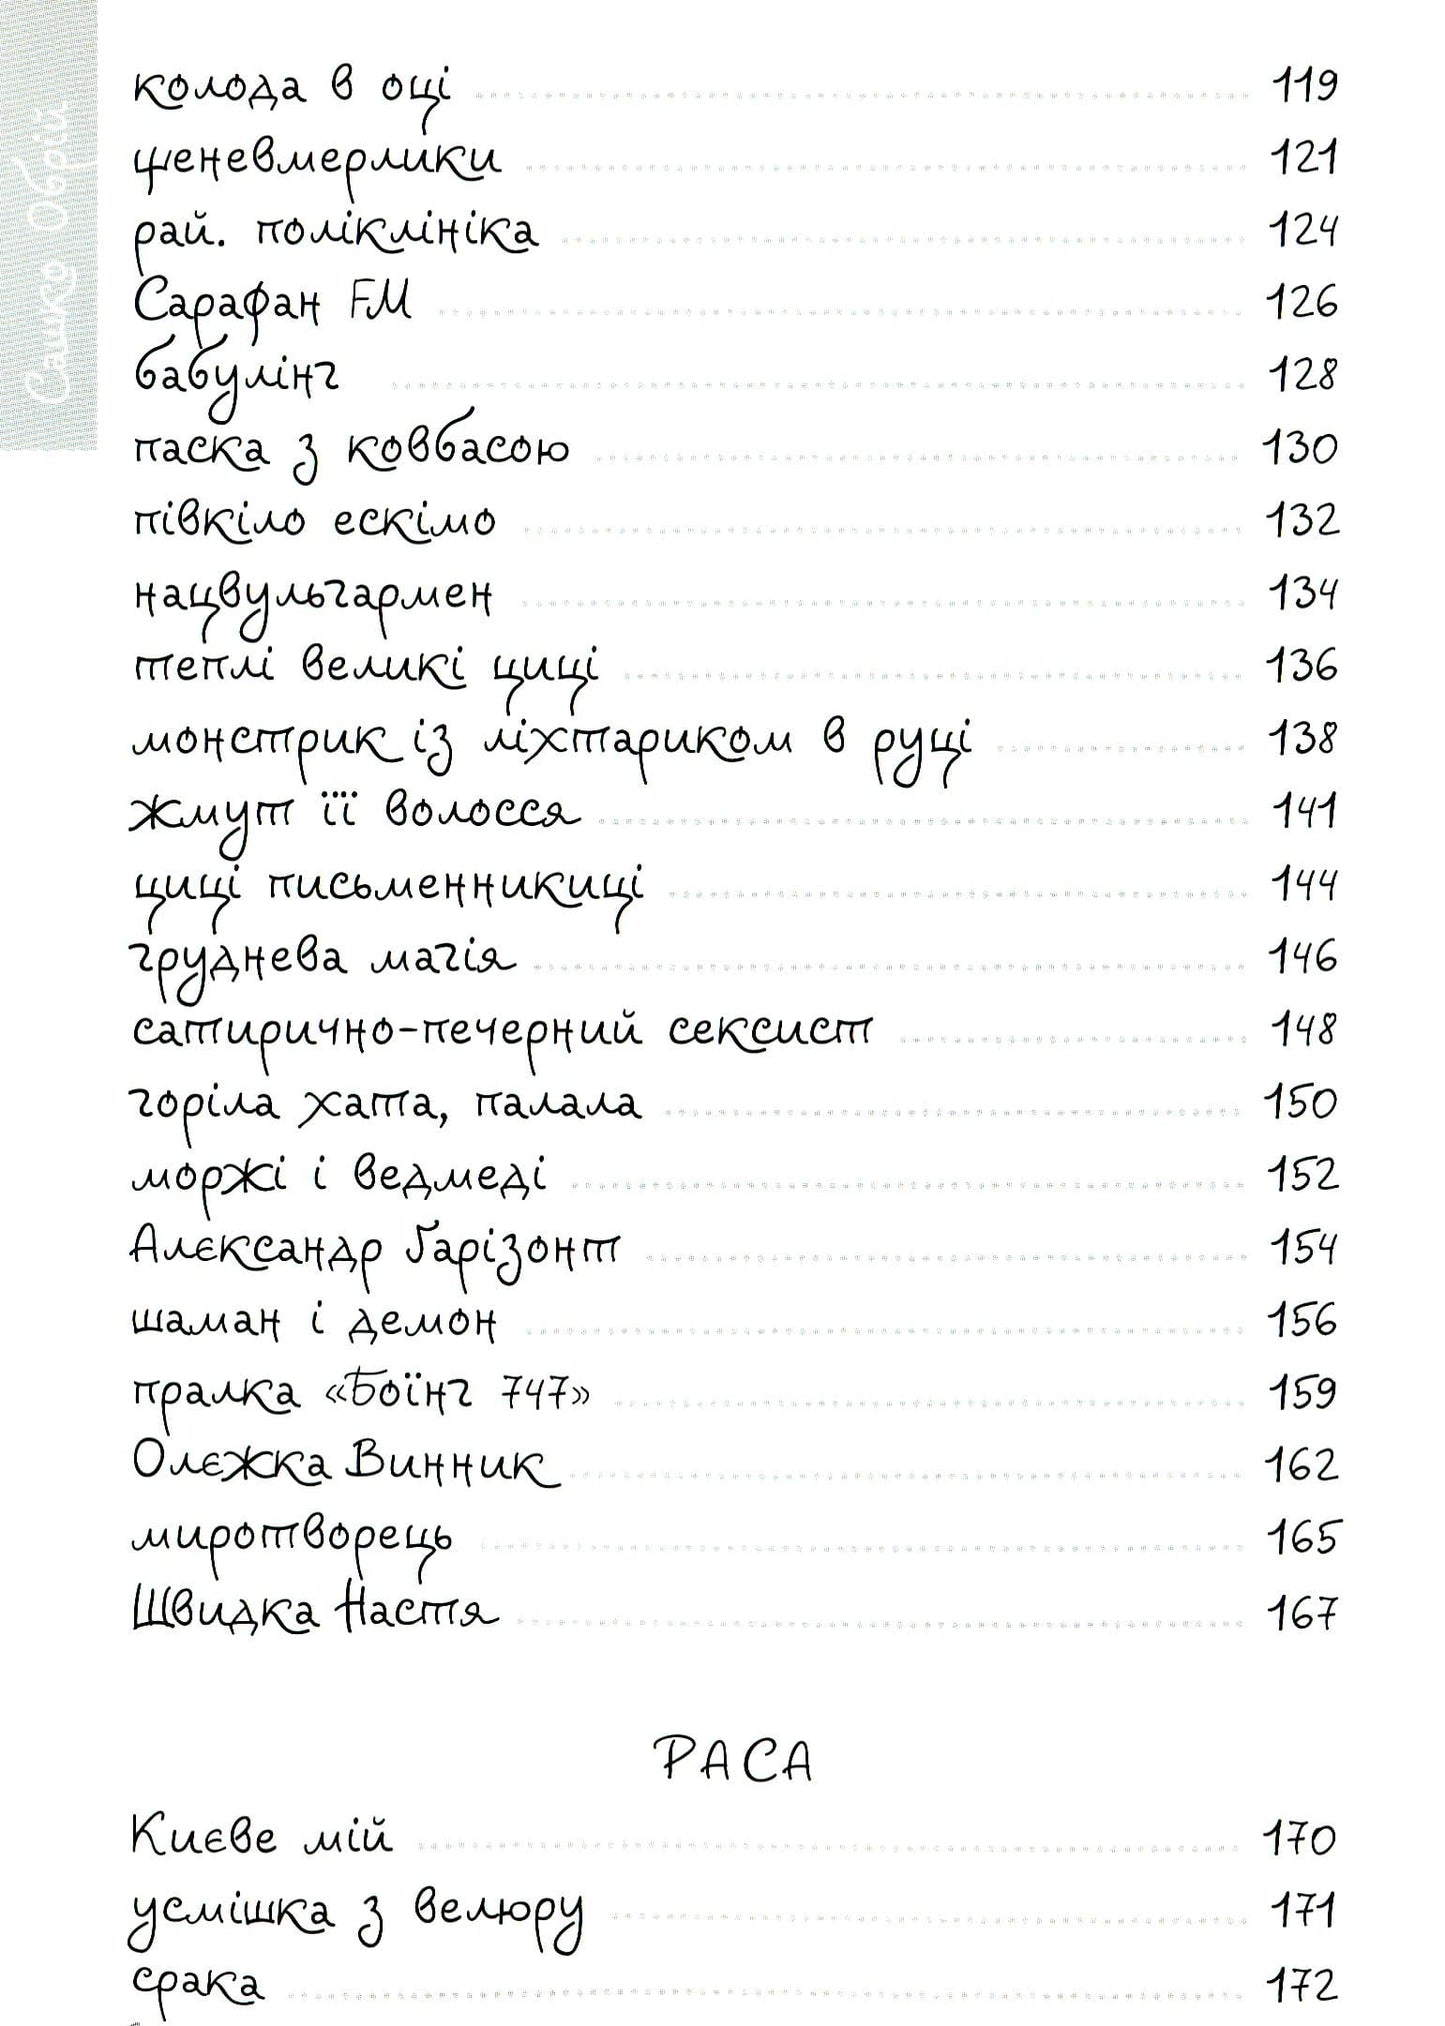 Сашко Обрій
колода в оці 119
щеневмерлики 121
рай. поліклініка 124
Сарафан FM 126
бабулінг 128
паска з ковбасою 130
півкіло ескімо 132
нацвульгармен 134
теплі великі циці 136
монстрик із ліхтариком в руці 138
жмут її волосся 141
циці письменникиці 144
груднева магія 146
сатирично-печерний сексист 148
горіла хата, палала 150
моржі і ведмеді 152
Алєксандр Ґарізонт 154
шаман і демон 156
пралка «Боїнг 747» 159
Олєжка Винник 162
миротворець 165
Швидка Настя 167
РАСА
Києве мій 170
усмішка з велюру 171
срака 172